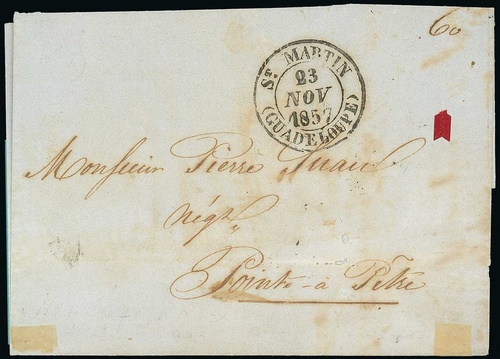 60
St. MARTIN
23
NOV
1857
(GUADELOUPE)
Monsieur Pierre
Négt.
Pointe-à Pitre